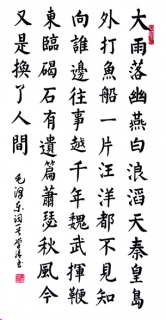 大雨落幽燕白浪滔天秦皇島
外打魚船一片汪洋都不見知
向誰邊往事越千年魏武揮鞭
東臨碣石有遺篇蕭瑟秋風今
又是換了人間
毛澤東詞